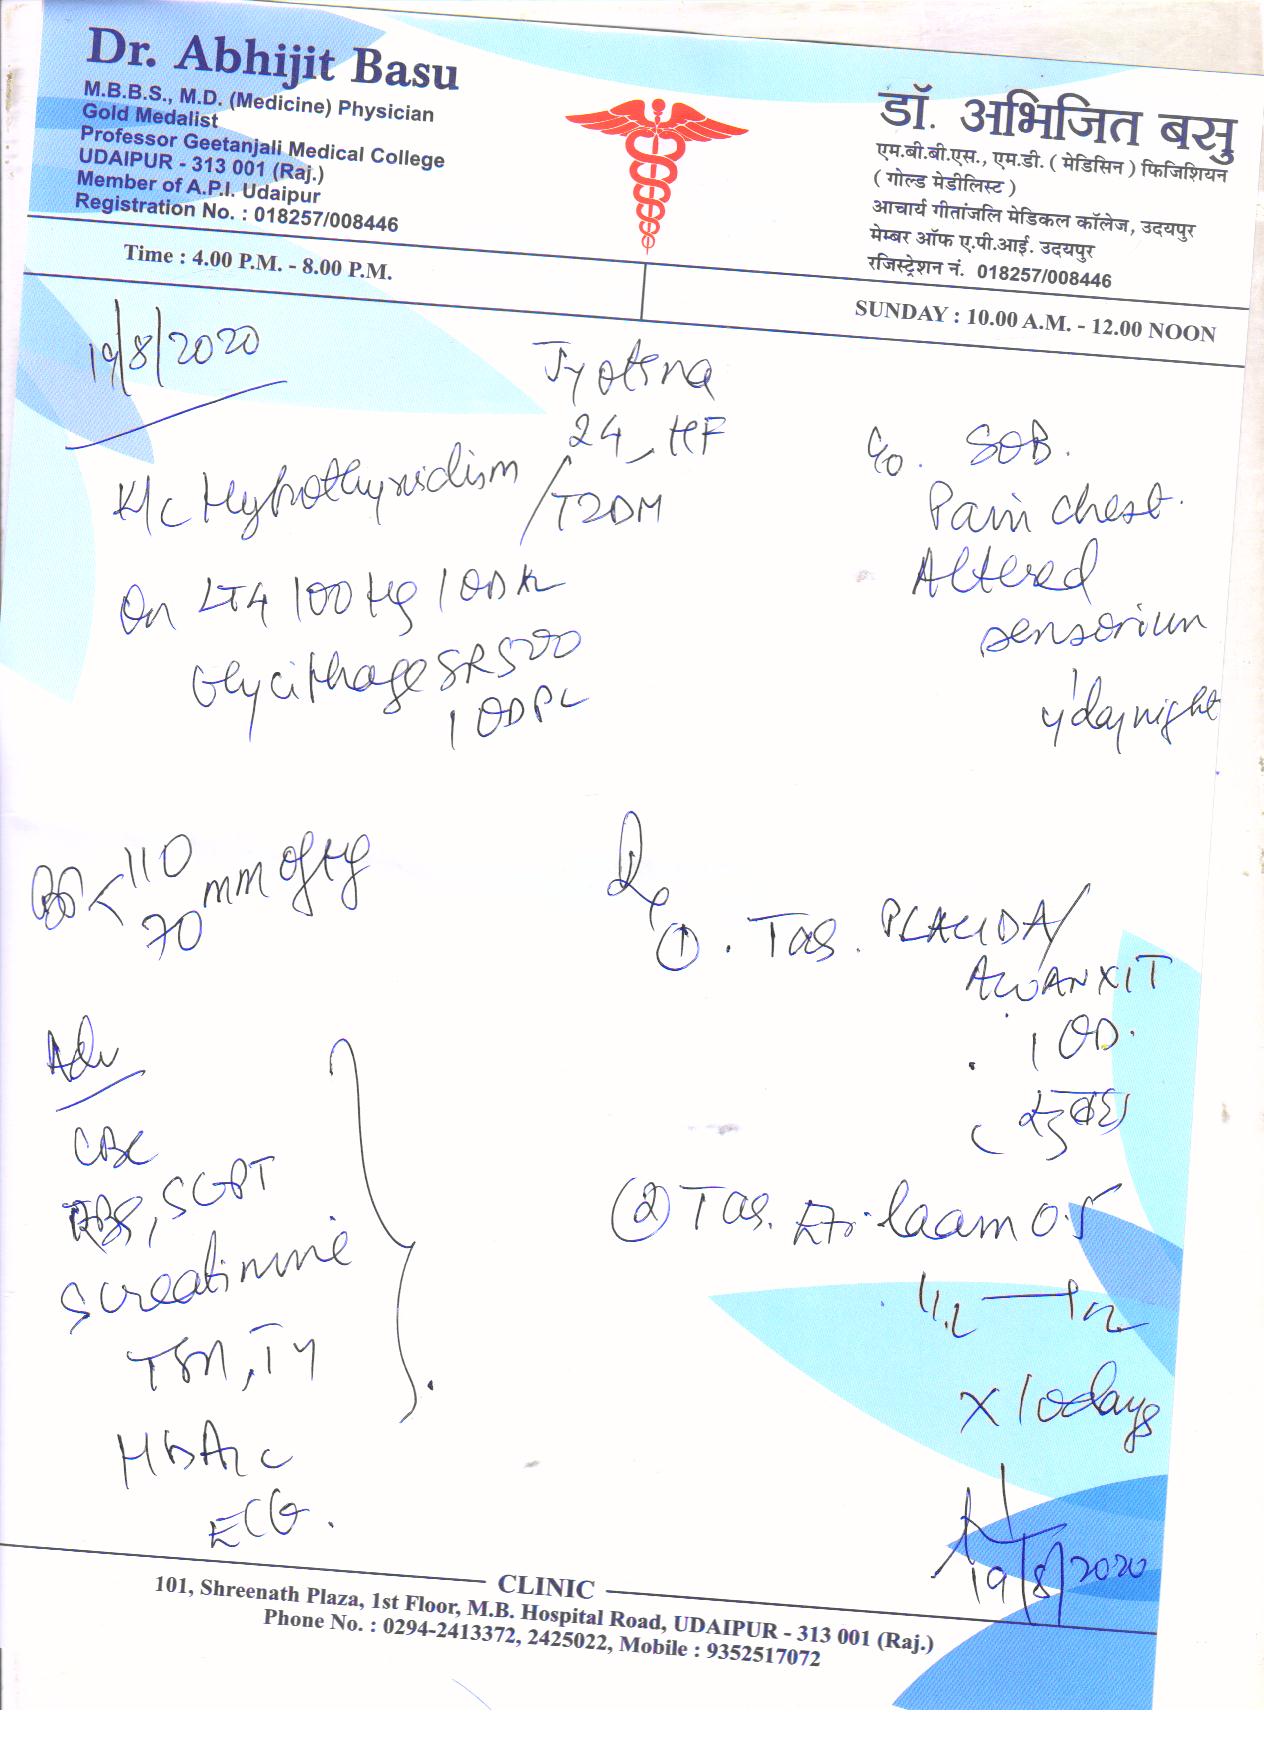 Dr. Abhijit Basu
M.B.B.S., M.D. (Medicine) Physician
Gold Medalist
Professor Geetanjali Medical College
UDAIPUR - 313 001 (Raj.)
Member of A.P.I. Udaipur
Registration No. : 018257/008446
डॉ. अभिजित बसु
एम.बी.बी.एस., एम.डी. ( मेडिसिन ) फिजिशियन
( गोल्ड मेडीलिस्ट )
आचार्य गीतांजलि मेडिकल कॉलेज, उदयपुर
मेम्बर ऑफ ए.पी.आई. उदयपुर
रजिस्ट्रेशन नं. 018257/008446
Time : 4.00 P.M. - 8.00 P.M.
SUNDAY : 10.00 A.M. - 12.00 NOON
19/8/2020
Jyotsna
24 HF
K/c Hypothyroidism / T2DM
On LT4 100 µg 1 OD
Glyciphage SR 500
1 OD PL
c/o. SOB.
Pain chest.
Altered
sensorium
y'day night
BP < 110
70 mm of Hg
Adv
CBC
RBS, SGPT
S creatinine
TSH, T4
HbA1c
ECG.
Rx
① . Tab. PLACIDA /
1 OD.
② Tab. 0.5
1/2 — 1/2
x 10 days
19/8/2020
CLINIC
101, Shreenath Plaza, 1st Floor, M.B. Hospital Road, UDAIPUR - 313 001 (Raj.)
Phone No. : 0294-2413372, 2425022, Mobile : 9352517072